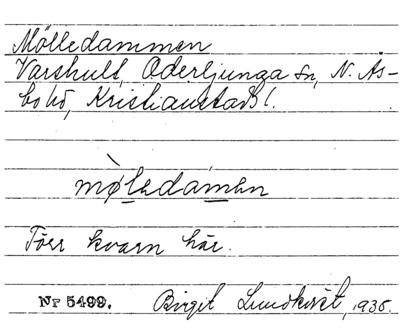 Mölledammen
Varshult, Oderljunga sn, N. Ås-
bo hd, Kristianstads l.
mø̀ledámən
Förr kvarn här.
Nr 5499. Birgit Lundkvist, 1935.